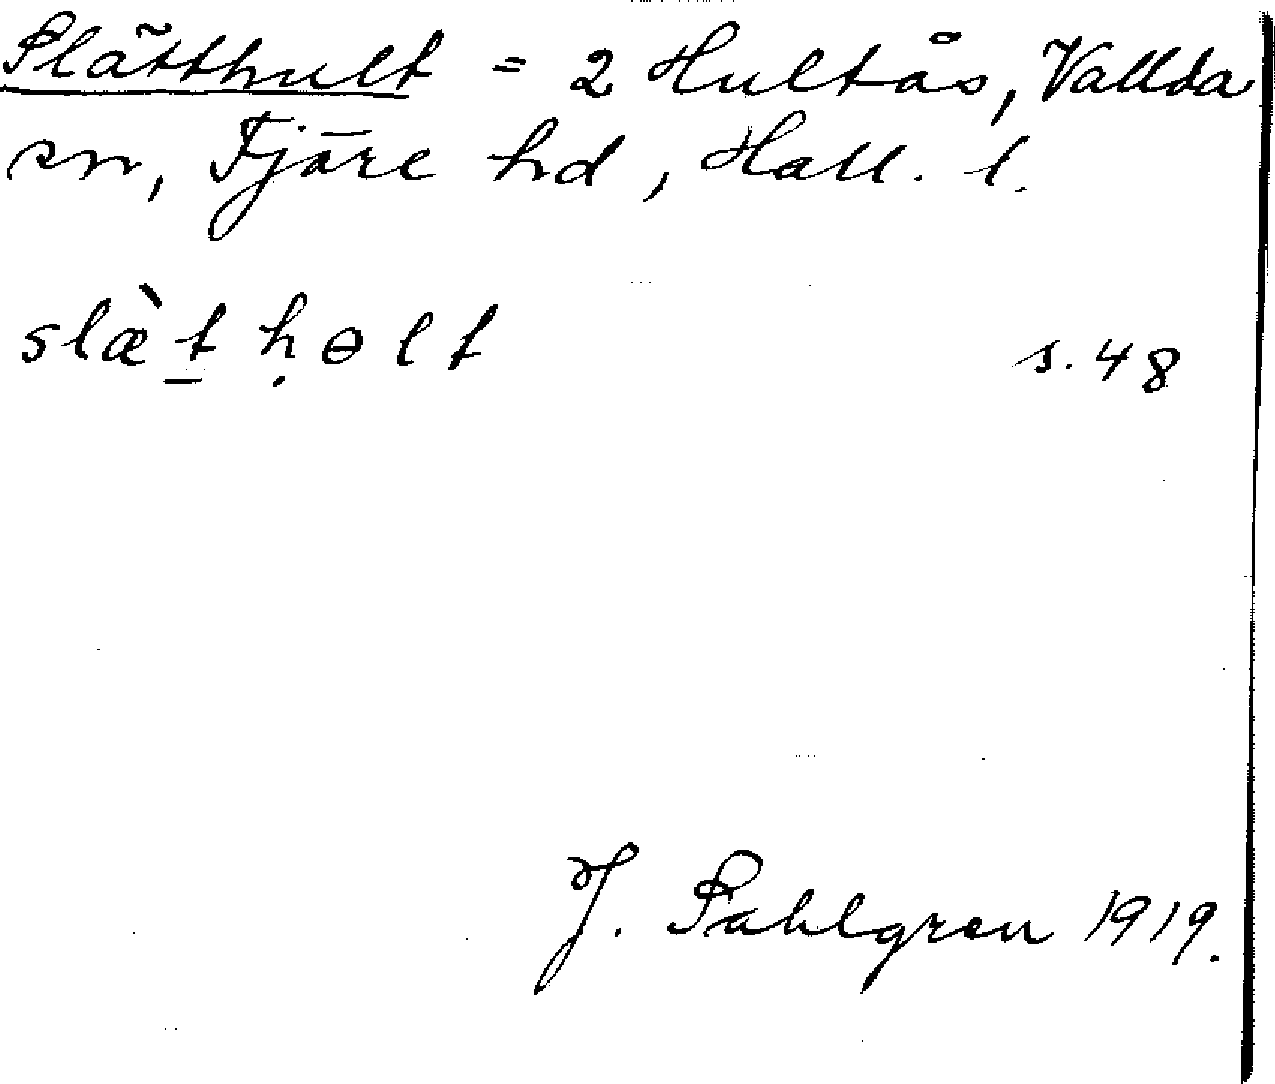 Slätthult = 2 Hultås, Vallda
sn, Fjäre hd, Hall. l.
slæ̀t̠ ḥɵlt s. 48
J. Sahlgren 1919.